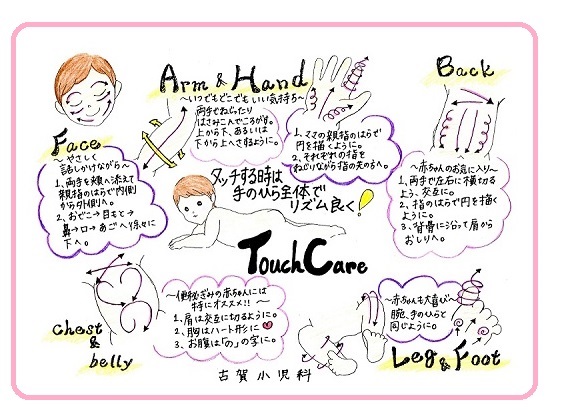 Arm & Hand
～いつでもどこでもいい気持ち～
両手でねじったり
はさみこんでころがす。
上から下、あるいは
下から上へさするように。
1、ママの親指のはらで
円を描くように。
2、それぞれの指を
ねじりながら指の先の方へ。
Back
～赤ちゃんのお気に入り～
1、両手で左右に横切る
よう、交互に。
2、指のはらで円を描く
ように。
3、背骨に沿って肩から
おしりへ。
Face
～やさしく
話しかけながら～
1、両手を頬へ添えて
親指のはらで内側
から外側へ。
2、おでこ→目もと→
鼻→口→あごへと徐々に
下へ。
タッチする時は
手のひら全体で
リズム良く!
Touch Care
chest
&
belly
～便秘ぎみの赤ちゃんには
特にオススメ!!～
1、肩は交互に切るように。
2、胸はハート形に
3、お腹は「の」の字に。
～赤ちゃんも大喜び～
腕、手のひらと
同じように。
Leg & Foot
古賀小児科